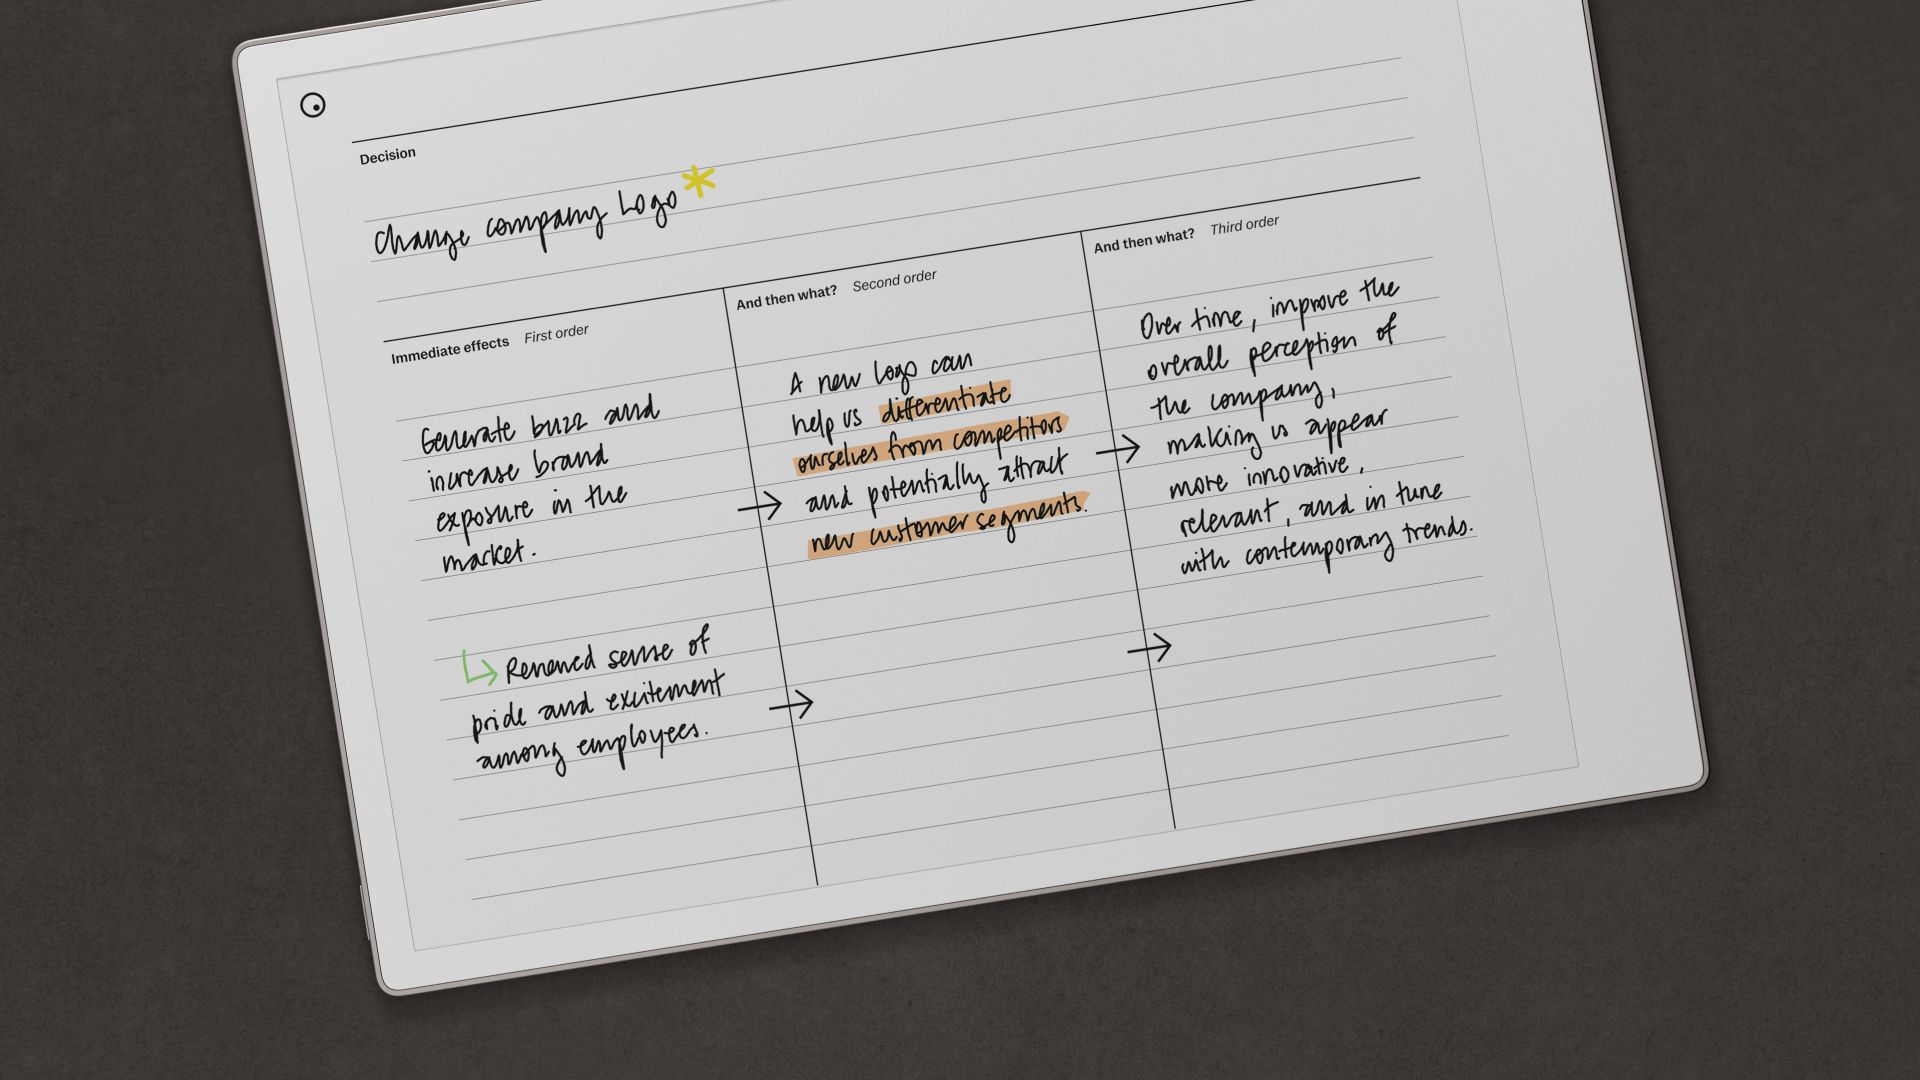 Decision
Change company Logo*
Immediate effects First order
Generate buzz and
increase brand
exposure in the
market.
↳ Renewed sense of
pride and excitement
among employees.
And then what? Second order
→ A new logo can
help us differentiate
ourselves from competitors
and potentially attract
new customer segments.
→
And then what? Third order
→ Over time, improve the
overall perception of
the company,
making us appear
more innovative,
relevant, and in tune
with contemporary trends.
→